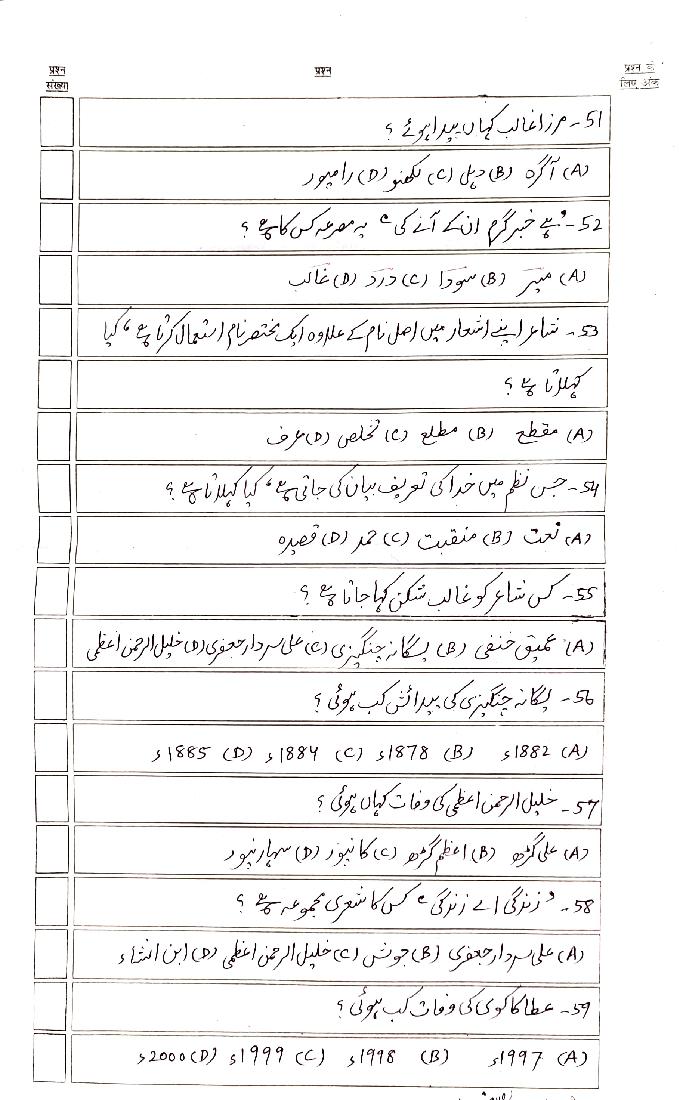 प्रश्न संख्या
प्रश्न
प्रश्न के लिए अंक
51- مرزا غالب کہاں پیدا ہوئے ؟
(A) آگرہ (B) دہلی (C) لکھنو (D) رامپور
52- ’ہے خبر گرم ان کے آنے کی‘ یہ مصرعہ کس کا ہے ؟
(A) میر (B) سودا (C) درد (D) غالب
53- شاعر اپنے اشعار میں اصل نام کے علاوہ ایک مختصر نام استعمال کرتا ہے، کیا
کہلاتا ہے ؟
(A) مقطع (B) مطلع (C) تخلص (D) عرف
54- جس نظم میں خدا کی تعریف بیان کی جاتی ہے، کیا کہلاتا ہے ؟
(A) نعت (B) منقبت (C) حمد (D) قصیدہ
55- کس شاعر کو غالب شکن کہا جاتا ہے ؟
(A) عمیق حنفی (B) یگانہ چنگیزی (C) علی سردار جعفری (D) خلیل الرحمن اعظمی
56- یگانہ چنگیزی کی پیدائش کب ہوئی ؟
(A) 1882ء (B) 1878ء (C) 1884ء (D) 1885ء
57- خلیل الرحمن اعظمی کی وفات کہاں ہوئی ؟
(A) علی گڑھ (B) اعظم گڑھ (C) کانپور (D) سہارنپور
58- ’زندگی اے زندگی‘ کس کا شعری مجموعہ ہے ؟
(A) علی سردار جعفری (B) جوش (C) خلیل الرحمن اعظمی (D) ابن انشاء
59- عطا کاکوی کی وفات کب ہوئی ؟
(A) 1997ء (B) 1998ء (C) 1999ء (D) 2000ء